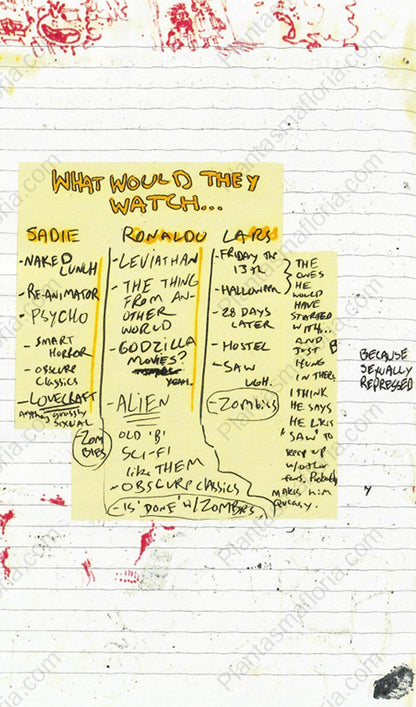 WHAT WOULD THEY
WATCH...
SADIE
-NAKED
LUNCH
-RE-ANIMATOR
-PSYCHO
-SMART
HORROR
-OBSCURE
CLASSICS
-LOVECRAFT
anything grossly
sexual
-ZOM
BIES
RONALDO
-LEVIATHAN
-THE THING
FROM AN-
OTHER
WORLD
-GODZILLA
MOVIES?
YEAH.
-ALIEN
OLD 'B'
SCI-FI
like THEM
-OBSCURE CLASSICS
-IS 'DONE' W/ ZOMBIES
LARS
-FRIDAY THE
13TH
-HALLOWEEN
-28 DAYS
LATER
-HOSTEL
-SAW
UGH.
-ZOMBIES
THE
ONES
HE
WOULD
HAVE
STARTED
WITH...
AND
JUST
HUNG
IN THERE
I THINK
HE SAYS
HE LIKES
"SAW" TO
KEEP UP
W/OTHER
FANS. Probably
MAKES HIM
QUEASY.
BECAUSE
SEXUALLY
REPRESSED
Plantasmafloria.com
Plantasmafloria.com
Plantasmafloria.com
Plantasmafloria.com
Plantasmafloria.com
Plantasmafloria.com